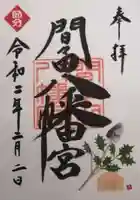 奉拝
間々八幡宮
節分
令和二年二月二日